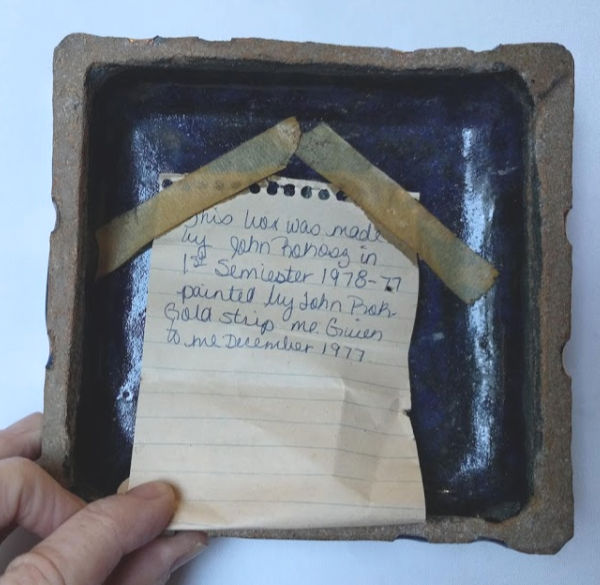 This box was made
by John Rokosz in
1st Semiester 1978-77
painted by John Rok-
Gold strip me. Givien
to me December 1977